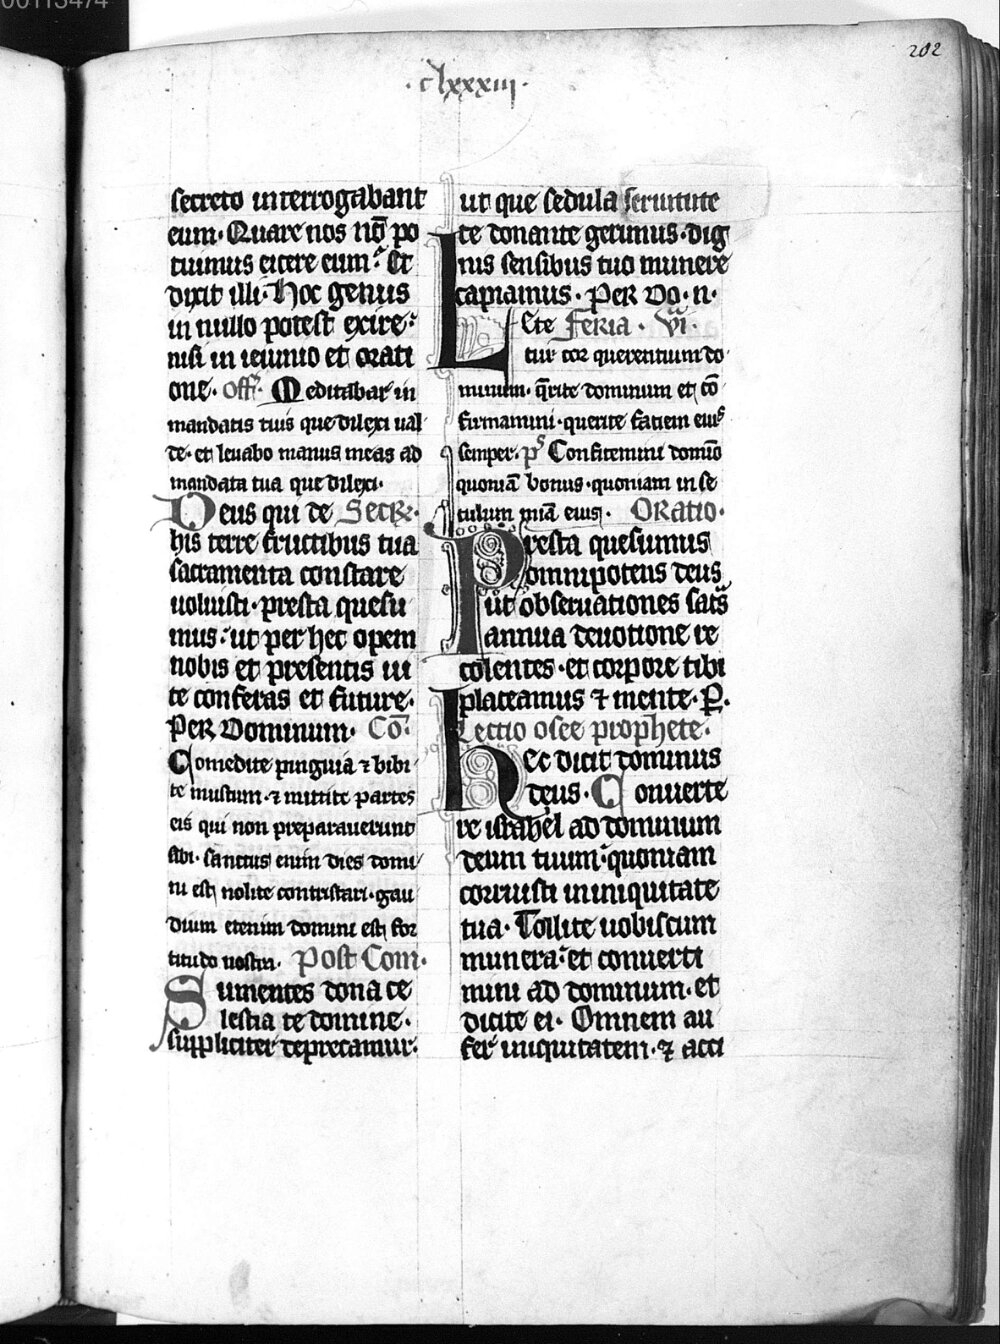 00115474
202
·clxxxiii·
secreto interrogabant
eum· Quare nos nō po
tuimus eicere eum? Et
dixit illi· Hoc genus
in nullo potest exire·
nisi in ieiunio et orati
one· Off· Meditabar in
mandatis tuis que dilexi ual
de· et leuabo manus meas ad
mandata tua que dilexi·
Deus qui de Secr·
his terre fructibus tua
sacramenta constare
uoluisti· presta quesu
mus· ut per hec opem
nobis et presentis ui
te conferas et future·
Per Dominum· Cō·
Comedite pinguia ⁊ bibi
te mustum· ⁊ mittite partes
eis qui non preparauerunt
sibi· sanctus enim dies domi
ni est nolite contristari· gau
dium etenim domini est for
titudo nostra· Post Com·
Sumentes dona ce
lestia te domine·
suppliciter deprecamur·
ut que sedula seruitute
te donante gerimus· dig
nis sensibus tuo munere
capiamus· Per Do· n·
Lete feria· vi·
tur cor querentium do
minum· q̄rite dominum et cō
firmamini· querite faciem eiuˢ
semper· pˢ Confitemini domīo
quoniā bonus· quoniam in se
culum mīa eius· Oratio·
Presta quesumus
omnipotens deus
ut obseruationes sac̄s
annua deuotione re
colentes· et corpore tibi
placeamus ⁊ mente· P.
Lectio osee prophete·
Hec dicit dominus
deus· Conuerte
re israhel ad dominum
deum tuum· quoniam
corruisti in iniquitate
tua· Tollite uobiscum
munera· et conuerti
mini ad dominum· et
dicite ei· Omnem au
fer iniquitatem· ⁊ acci